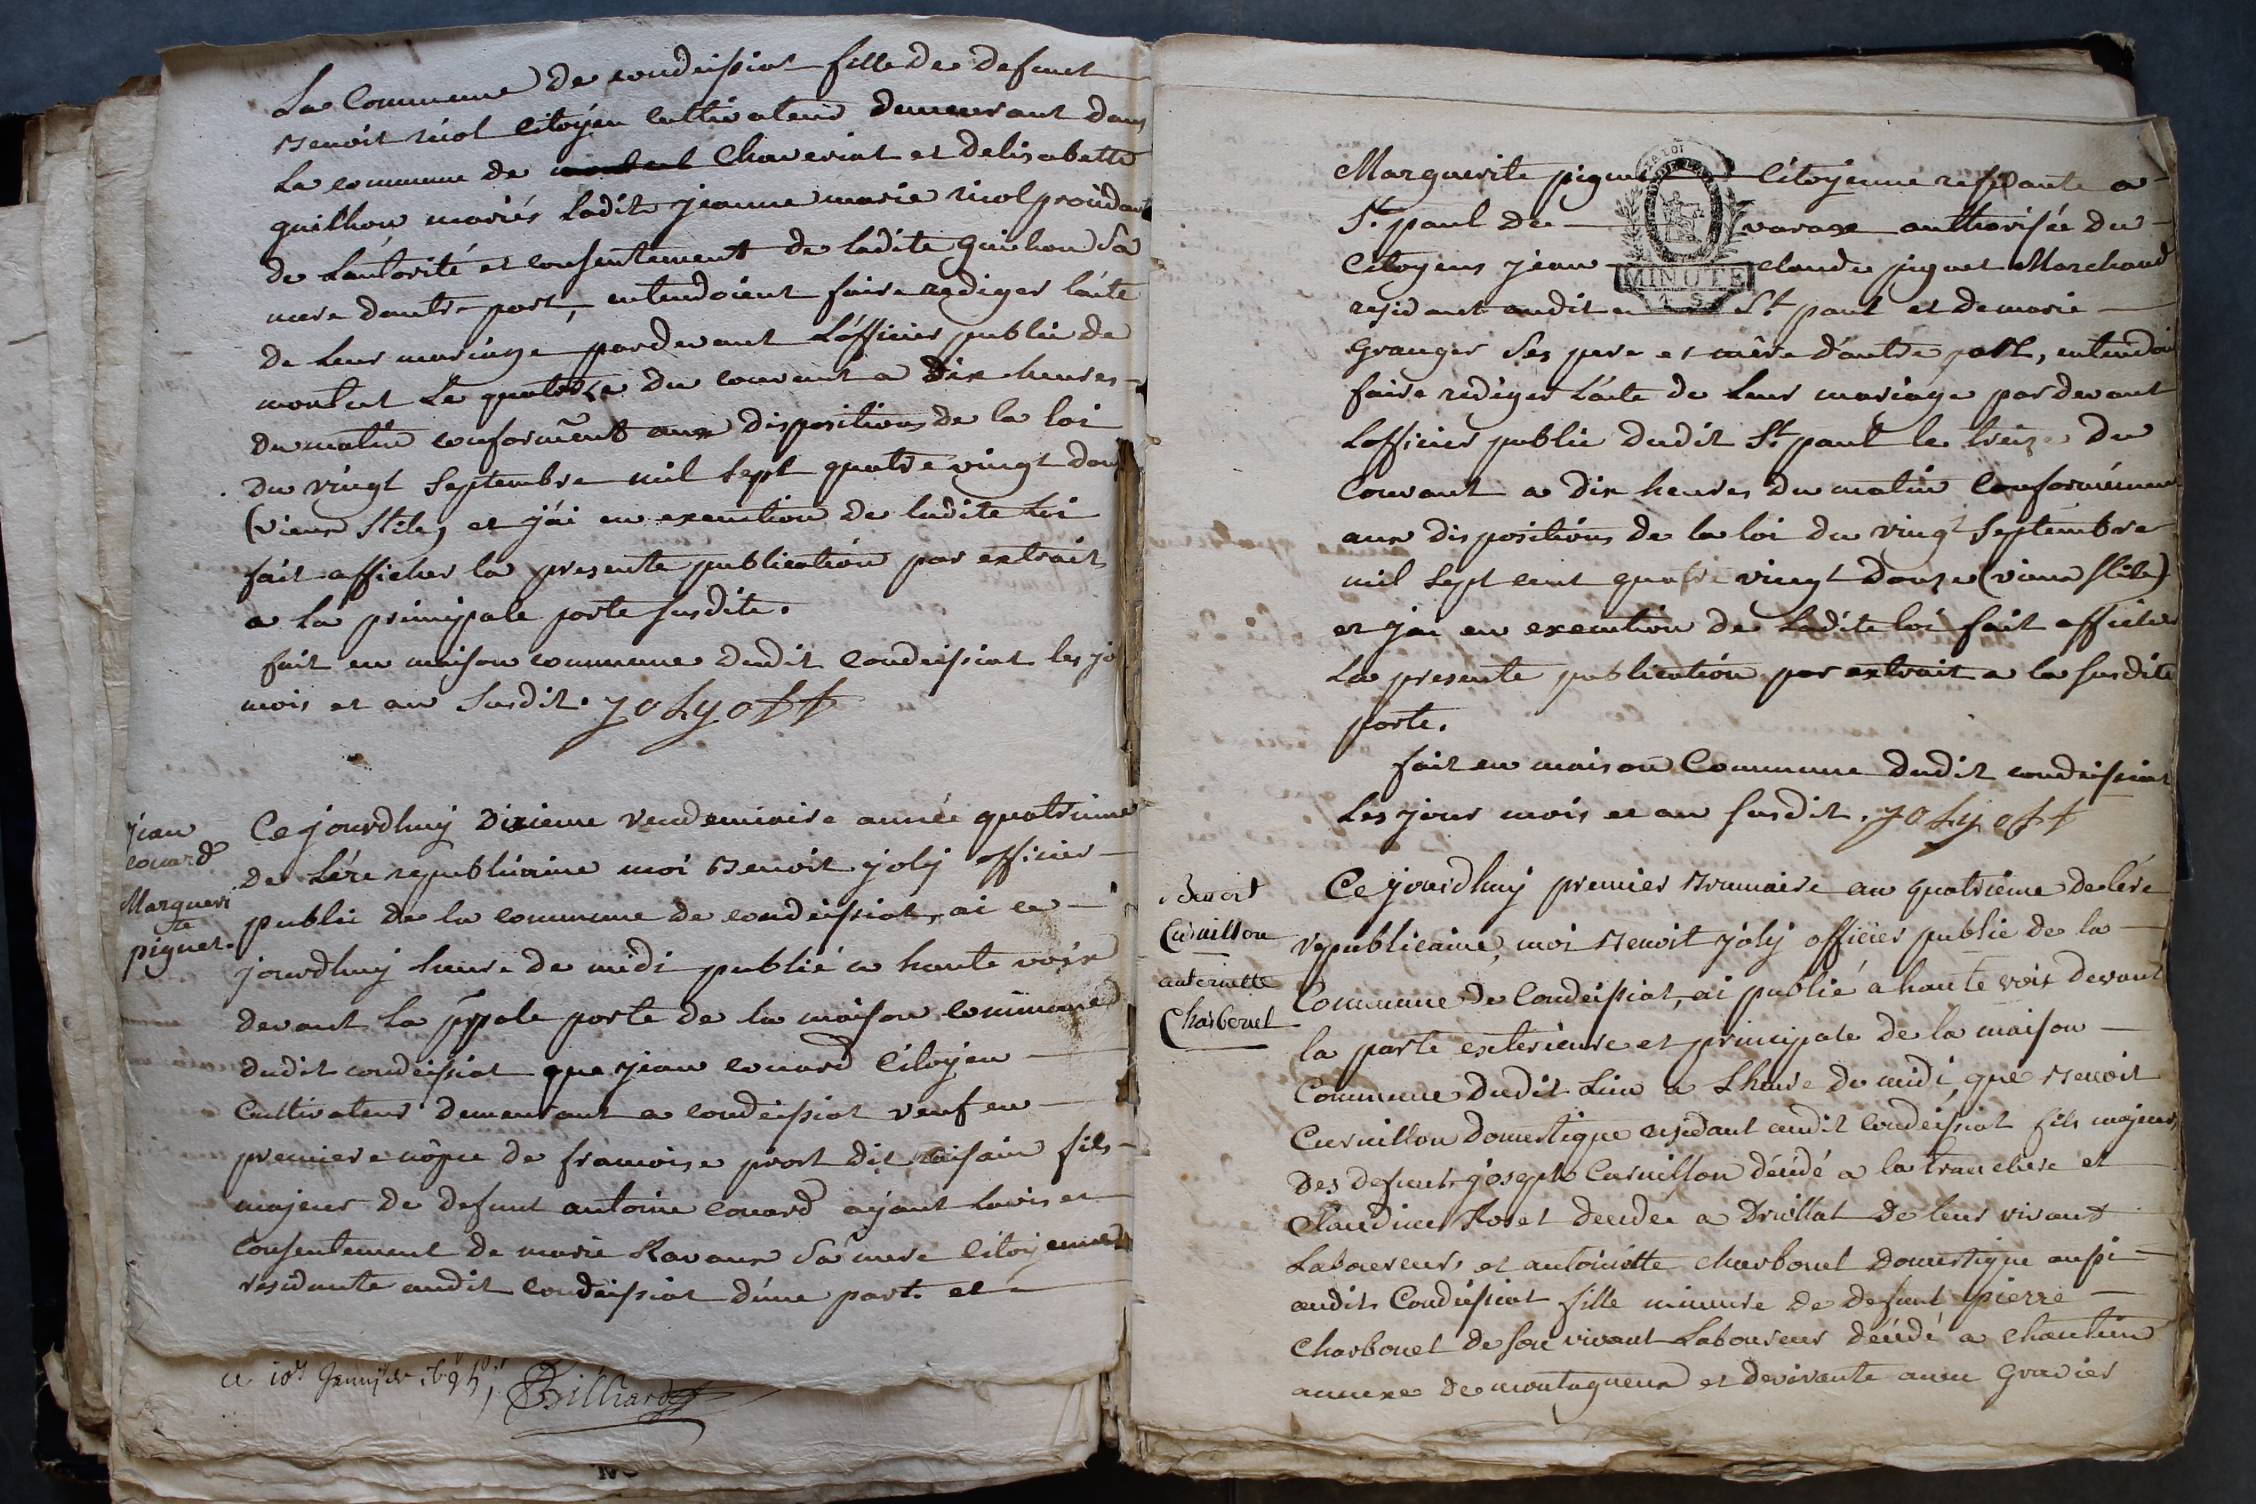 La Commune de condeissiat fille de defunt
Benoit niol Citoyen cultivateur demeurant dans
La commune de Chaveriat et delisabette
guilhon mariés ladit jeanne marie niol proùdant
de Lautorité et consentement de ladite Guichon Sa
mere dautre part, entendoient faire rediger lacte
de leur mariage pardevant L'officier public de
montcet Le quatorze du courant a Dix heures
du matin conformẽnt aux dispositions de la loi
du vingt Septembre mil Sept quatre vingt douze
(vieux Stile) et j'ai en execution de ladite Loi
fait afficher la presente publication par extrait
a la principale porte susdite.
fait en maison commune dudit condeissiat les jo
mois et an Susdit. Joly off
jean
couard
Margueri
te
piguet.
Ce jourdhuy Dixieme vendemiaire année quatrieme
de L'ére republicaine moi Benoit joly officier
public de la commune de condeissiat, ai ce
jourdhuy heure de midi publié a haute voix
devant la pp̃ale porte de la maison commune
dudit condeissiat que jean couard Citoyen
Cultivateur demeurant a condeissiat veuf en
premiere nopce de francoise prost dit raisain fils
majeur de defunt antoine couard ayant lavis et
Consentement de marie Ravaux Sa mere citoyenne
residante audit condeissiat d'une part et
ce 10e Janvier 1695
Billiard
Marguerite piguet Citoyenne residante a
St paul de varax authorisée du
Citoyens jean claude piguet Marchand
residant audit St paul et de marie
Granger Ses pere et mère d'autre part, entendoi
faire rediger L'acte de Leur mariage par devant
Lofficier public dudit St paul le treize du
Courant a dix heures du matin Conformément
aux dispositions de la loi du vingt Septembre
mil Sept cent quatre vingt douze (vieux stile)
et j'ai en execution de Ladite loi fait afficher
La presente publication par extrait a la susdite
porte.
fait en maison Commune dudit condeissiat
Les jour mois et an susdit. Joly off
MINUTE
Benoit
Curnillon
antoinette
Charbonet
Ce jourdhuy premier Brumaire an quatrième de l'ére
republicaine, moi Benoit joly officier public de la
Commune de Condeissiat, ai publié a haute voix devant
la porte exterieure et principale de la maison
Commune dudit Lieu a L'heure de midi, que Benoit
Curnillon Domestique residant audit Condeissiat fils majeur
des defunts joseph Curnillon décédé a la trancliere et
Claudine Roset decedée a Druillat de leur vivant
Laboureurs, et antoinette charbonet Domestique aussi
audit Condeissiat fille mineure de defunt pierre
Charbonet de son vivant Laboureur décédé a Chanteins
annexe de montagneux et devivante anne Gravier